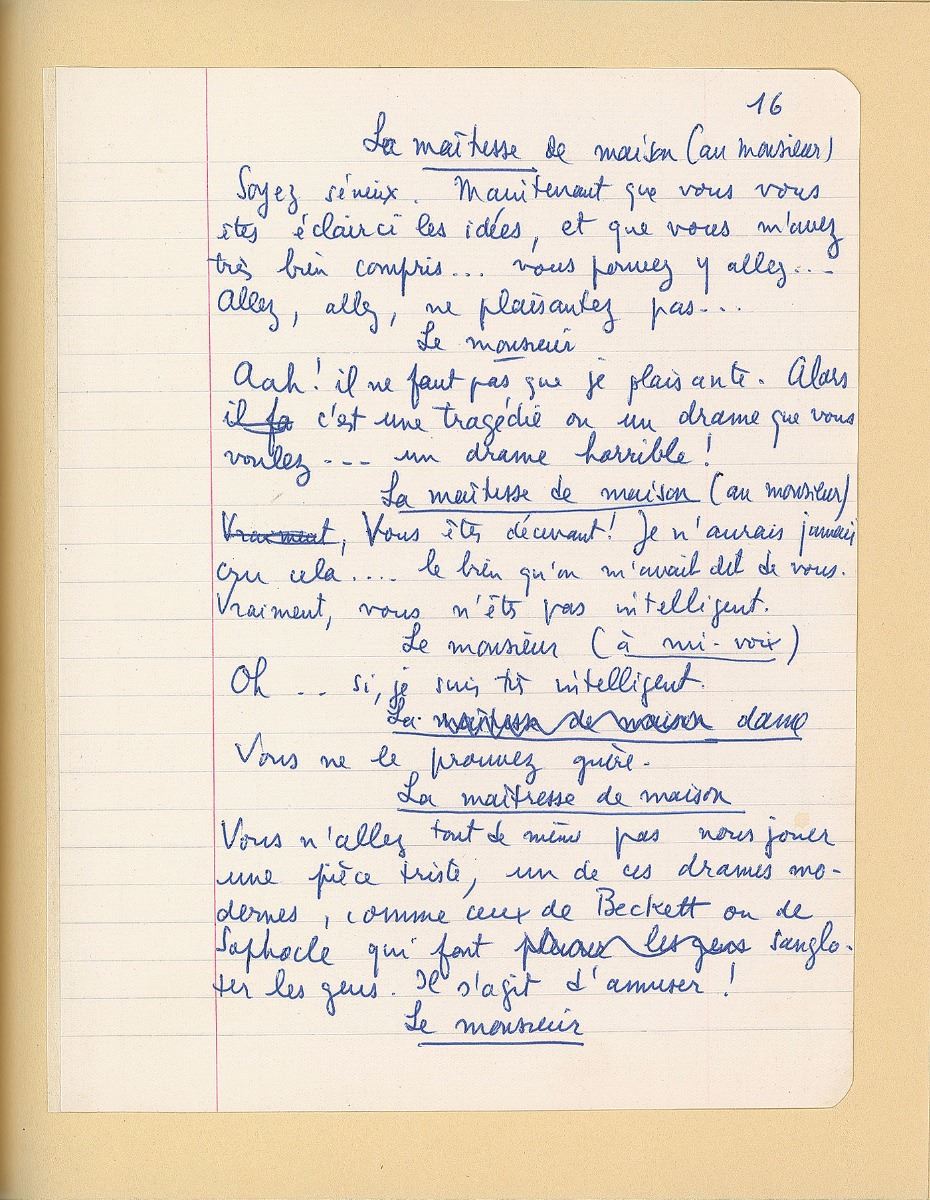 16
La maîtesse de maison (au monsieur)
Soyez sérieux. Maintenant que vous vous
êtes éclairci les idées, et que vous m'avez
très bien compris... vous pouvez y allez...
Allez, allez, ne plaisantez pas...
Le monsieur
Aah! il ne faut pas que je plaisante. Alors
il fa c'est une tragédie ou un drame que vous
voulez --- un drame horrible!
La maîtesse de maison (au monsieur)
Vraiment, Vous êtes décevant! Je n'aurais jamais
cru cela.... le bien qu'on m'avait dit de vous.
Vraiment, vous n'êtes pas intelligent.
Le monsieur (à mi-voix)
Oh .. si, je suis très intelligent.
La maîtesse de maison dame
Vous ne le prouvez guère.
La maîtresse de maison
Vous n'allez tout de même pas nous jouer
une pièce triste, un de ces drames mo-
dernes, comme ceux de Beckett ou de
Sophocle qui font pleurer les gens sanglo-
ter les gens. Il s'agit d'amuser!
Le monsieur